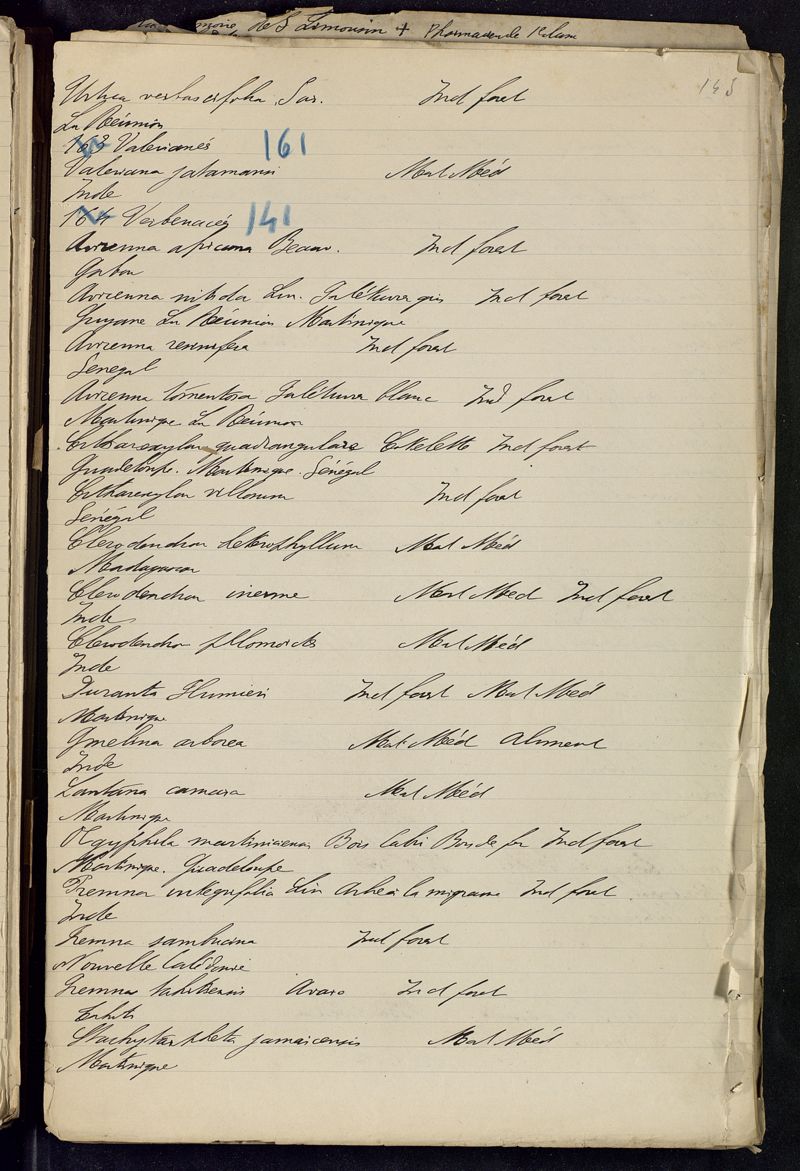 de S Limousin + Pharmacien de 1e classe
145
Urtica verbascifolia. Ind forest
La Réunion
163 Valerianés 161
Valeriana jatamansi Mat Méd
Inde
164 Verbenacées 141
Avicenna africana Beauv. Ind forest
Gabon
Avicenna nitida Lin. Palétuvier gris Ind forest
Guyane La Réunion Martinique
Avicenna resinifera Ind forest
Senegal
Avicenna tomentosa Palétuvier blanc Ind forest
Martinique La Réunion
Citharexylon quadrangulare Cotelette Ind forest
Guadeloupe. Martinique. Sénégal
Citharexylon villosum Ind forest
Sénégal
Clerodendron heterophyllum Mat Méd
Madagascar
Clerodendron inerme Mat Méd Ind forest
Inde
Clerodendron phlomoides Mat Méd
Inde
Duranta Plumieri Ind forest Mat Méd
Martinique
Gmelina arborea Mat. Méd Aliment
Inde
Lantana camara Mat Méd
Martinique
martinicensis Bois cabri Bois de fer Ind forest
Martinique. Guadeloupe
Premna integrifolia Lin Arbre à la migraine Ind forest
Inde
Premna sambucina Ind forest
Nouvelle Calédonie
Premna tahitensis Avaro Ind forest
Tahiti
Stachytarpheta jamaicensis Mat Méd
Martinique